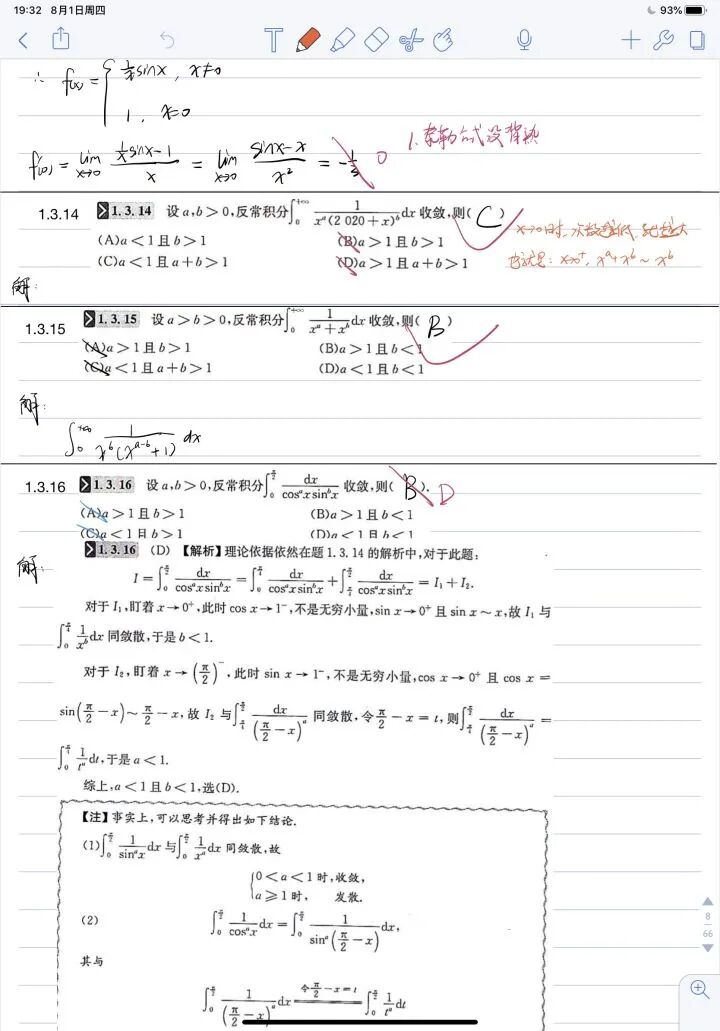 19:32 8月1日周四
93%
∴ f(x) = { 1/x sinx, x≠0
1, x=0
f'(0) = lim x→0 (1/x sinx − 1)/x = lim x→0 (sinx − x)/x² = 0
1.3.14 1.3.14 设 a,b>0,反常积分∫₀^{+∞} 1/(x^a(2 020+x)^b) dx 收敛,则( C )
(A)a<1且b>1 (B)a>1且b>1
(C)a<1且a+b>1 (D)a>1且a+b>1
也就是: x→0⁺, x^a+x^b ~ x^b
解:
1.3.15 1.3.15 设 a>b>0,反常积分∫₀^{+∞} 1/(x^a+x^b) dx 收敛,则( B )
(A)a>1且b>1 (B)a>1且b<1
(C)a<1且a+b>1 (D)a<1且b<1
解:
∫₀^{+∞} 1/(x^b(x^{a-b}+1)) dx
1.3.16 1.3.16 设 a,b>0,反常积分∫₀^{π/2} dx/(cos^a x sin^b x) 收敛,则( B ). D
(A)a>1且b>1 (B)a>1且b<1
(C)a<1且b>1 (D)a<1且b<1
解:
1.3.16 (D) 【解析】理论依据依然在题1.3.14的解析中,对于此题:
I=∫₀^{π/2} dx/(cos^a x sin^b x)=∫₀^{π/4} dx/(cos^a x sin^b x)+∫_{π/4}^{π/2} dx/(cos^a x sin^b x)=I₁+I₂.
对于 I₁,盯着 x→0⁺,此时 cos x→1⁻,不是无穷小量,sin x→0⁺且 sin x~x,故 I₁与
∫₀^{π/4} 1/x^b dx 同敛散,于是 b<1.
对于 I₂,盯着 x→(π/2)⁻,此时 sin x→1⁻,不是无穷小量,cos x→0⁺且 cos x=
sin(π/2−x)~π/2−x,故 I₂ 与∫_{π/4}^{π/2} dx/(π/2−x)^a 同敛散,令π/2−x=t,则∫_{π/4}^{π/2} dx/(π/2−x)^a=
∫₀^{π/4} 1/t^a dt,于是 a<1.
综上,a<1且b<1,选(D).
【注】事实上,可以思考并得出如下结论.
(1)∫₀^{π/2} 1/sin^a x dx 与∫₀^{π/2} 1/x^a dx 同敛散,故
{0<a<1时,收敛,
a≥1时, 发散.
(2) ∫₀^{π/2} 1/cos^a x dx=∫₀^{π/2} 1/sin^a(π/2−x) dx,
其与
∫₀^{π/2} 1/(π/2−x)^a dx 令π/2−x=t ∫₀^{π/2} 1/t^a dt
8
66